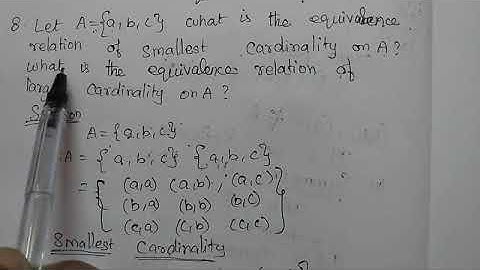 8. Let A={a,b,c} what is the equivalence
relation of smallest cardinality on A?
what is the equivalence relation of
cardinality on A?
A={a,b,c}
A = {a,b,c} {a,b,c}
= { (a,a) (a,b), (a,c)
(b,a) (b,b) (b,c)
(c,a) (c,b) (c,c) }
Smallest Cardinality